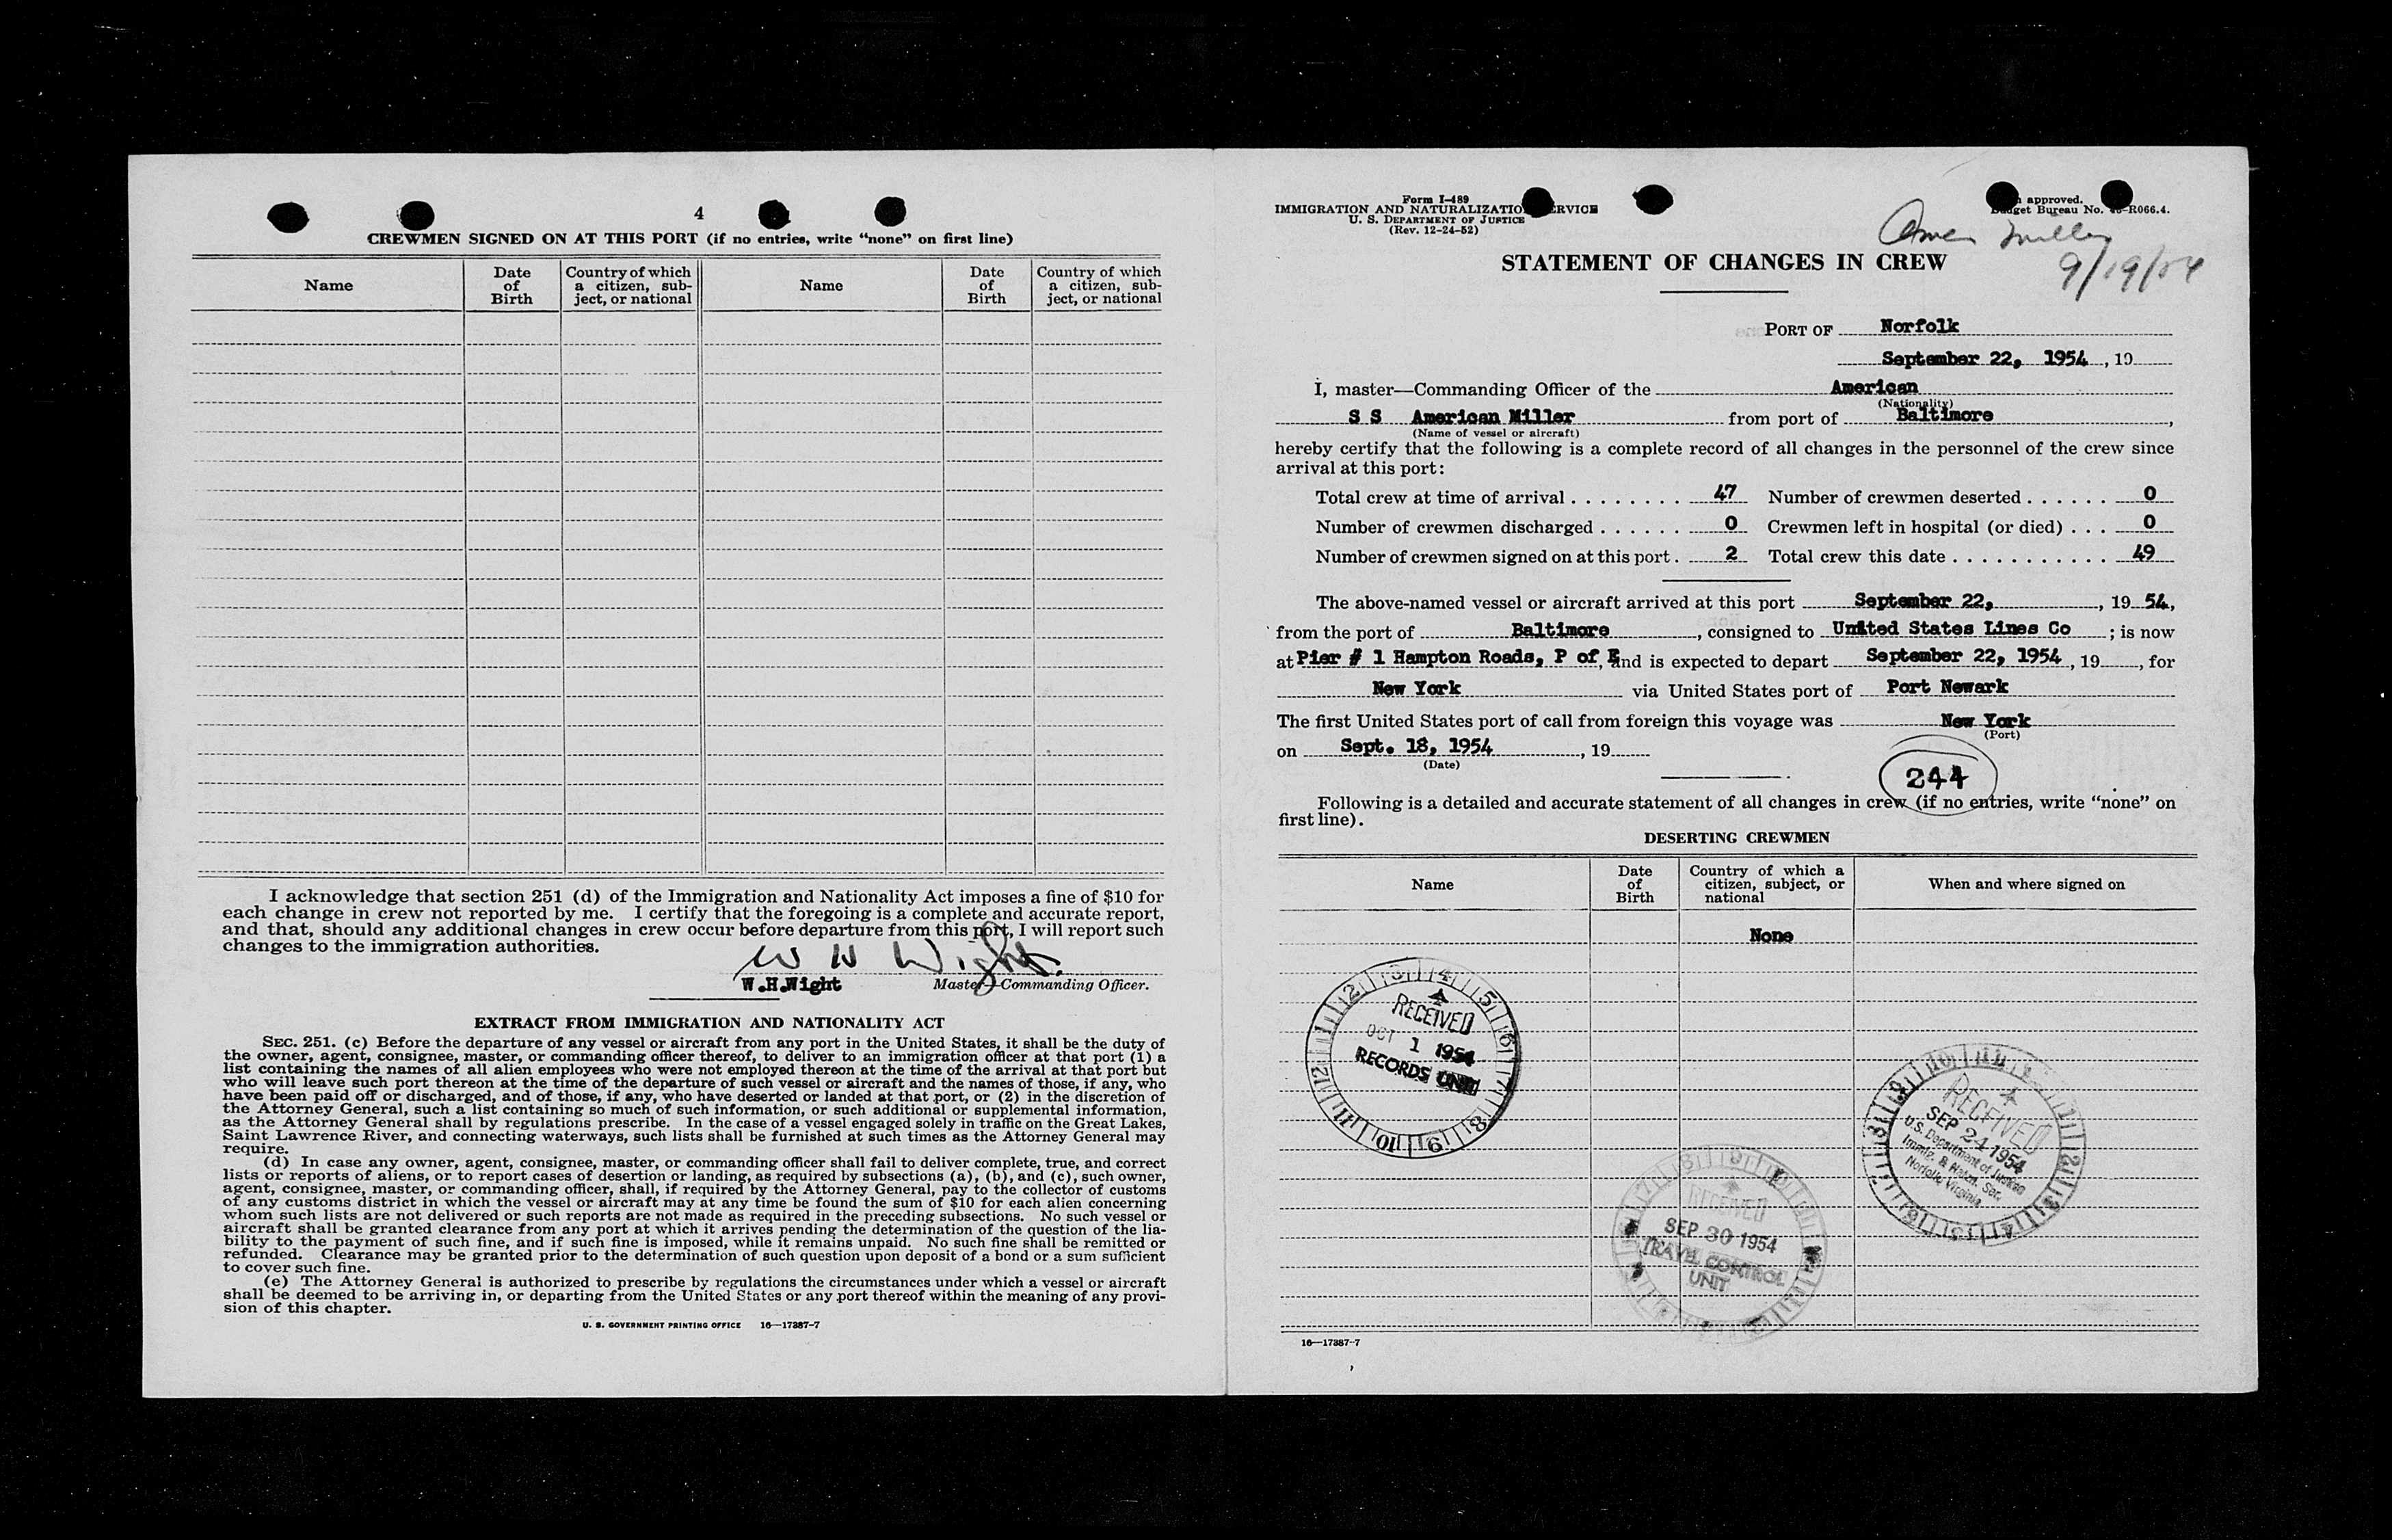 4
CREWMEN SIGNED ON AT THIS PORT (if no entries, write "none" on first line)
Name
Date of Birth
Country of which a citizen, subject, or national
Name
Date of Birth
Country of which a citizen, subject, or national
I acknowledge that section 251 (d) of the Immigration and Nationality Act imposes a fine of $10 for
each change in crew not reported by me. I certify that the foregoing is a complete and accurate report,
and that, should any additional changes in crew occur before departure from this port, I will report such
changes to the immigration authorities.
W H Wight
W.H.Wight Master—Commanding Officer.
EXTRACT FROM IMMIGRATION AND NATIONALITY ACT
SEC. 251. (c) Before the departure of any vessel or aircraft from any port in the United States, it shall be the duty of
the owner, agent, consignee, master, or commanding officer thereof, to deliver to an immigration officer at that port (1) a
list containing the names of all alien employees who were not employed thereon at the time of the arrival at that port but
who will leave such port thereon at the time of the departure of such vessel or aircraft and the names of those, if any, who
have been paid off or discharged, and of those, if any, who have deserted or landed at that port, or (2) in the discretion of
the Attorney General, such a list containing so much of such information, or such additional or supplemental information,
as the Attorney General shall by regulations prescribe. In the case of a vessel engaged solely in traffic on the Great Lakes,
Saint Lawrence River, and connecting waterways, such lists shall be furnished at such times as the Attorney General may
require.
(d) In case any owner, agent, consignee, master, or commanding officer shall fail to deliver complete, true, and correct
lists or reports of aliens, or to report cases of desertion or landing, as required by subsections (a), (b), and (c), such owner,
agent, consignee, master, or commanding officer, shall, if required by the Attorney General, pay to the collector of customs
of any customs district in which the vessel or aircraft may at any time be found the sum of $10 for each alien concerning
whom such lists are not delivered or such reports are not made as required in the preceding subsections. No such vessel or
aircraft shall be granted clearance from any port at which it arrives pending the determination of the question of the lia-
bility to the payment of such fine, and if such fine is imposed, while it remains unpaid. No such fine shall be remitted or
refunded. Clearance may be granted prior to the determination of such question upon deposit of a bond or a sum sufficient
to cover such fine.
(e) The Attorney General is authorized to prescribe by regulations the circumstances under which a vessel or aircraft
shall be deemed to be arriving in, or departing from the United States or any port thereof within the meaning of any provi-
sion of this chapter.
U. S. GOVERNMENT PRINTING OFFICE 16—17387-7
Form I-489
IMMIGRATION AND NATURALIZATION SERVICE
U. S. DEPARTMENT OF JUSTICE
(Rev. 12-24-52)
approved.
Budget Bureau No. R066.4.
Amer Miller
9/19/54
STATEMENT OF CHANGES IN CREW
PORT OF Norfolk
September 22, 1954, 19
I, master—Commanding Officer of the American
(Nationality)
S S American Miller from port of Baltimore,
(Name of vessel or aircraft)
hereby certify that the following is a complete record of all changes in the personnel of the crew since
arrival at this port:
Total crew at time of arrival . . . . . . . . 47 Number of crewmen deserted . . . . . . 0
Number of crewmen discharged . . . . . . 0 Crewmen left in hospital (or died) . . . 0
Number of crewmen signed on at this port . 2 Total crew this date . . . . . . . . . . . 49
The above-named vessel or aircraft arrived at this port September 22, , 19 54,
from the port of Baltimore, consigned to United States Lines Co; is now
at Pier # 1 Hampton Roads, P of E, and is expected to depart September 22, 1954, 19, for
New York via United States port of Port Newark
The first United States port of call from foreign this voyage was New York
(Port)
on Sept. 18, 1954, 19
(Date)
244
Following is a detailed and accurate statement of all changes in crew (if no entries, write "none" on
first line).
DESERTING CREWMEN
Name
Date of Birth
Country of which a citizen, subject, or national
When and where signed on
None
RECEIVED
OCT 1 1954
RECORDS UNIT
RECEIVED
SEP 24 1954
U.S. Department of Justice
Immig. & Natzn. Ser.
Norfolk, Virginia
RECEIVED
SEP 30 1954
TRAVEL CONTROL
UNIT
16—17387-7